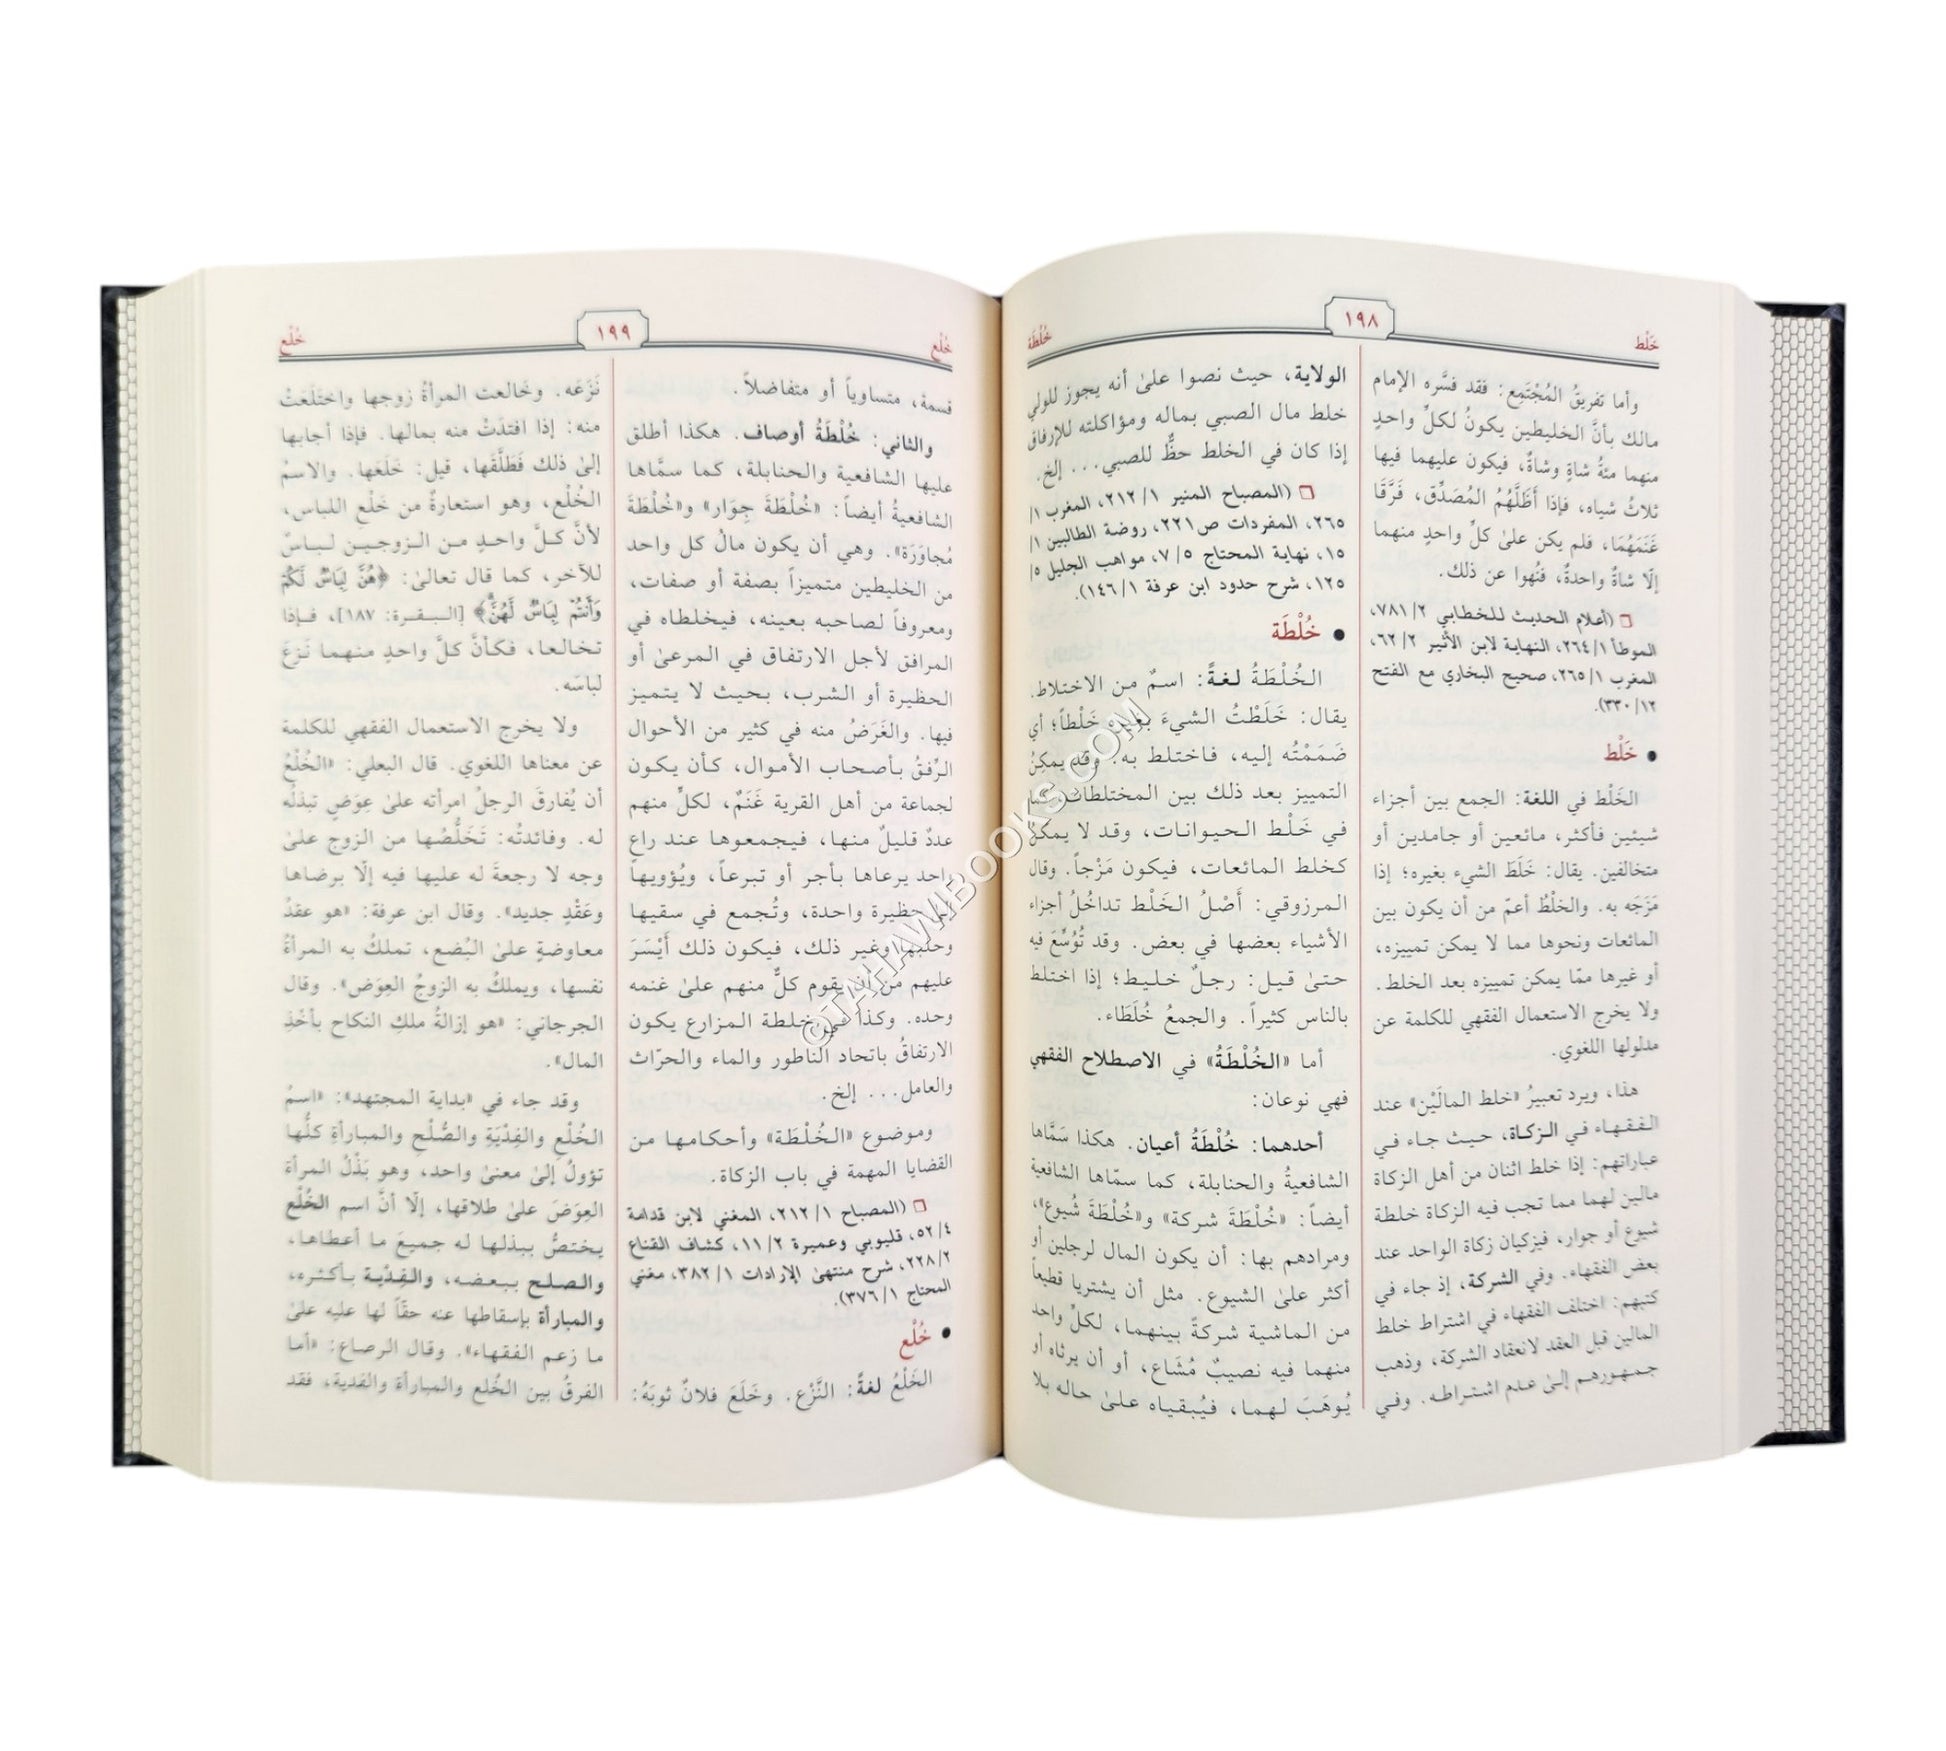 خَلْط
١٩٨
خُلْطَة
وأما تفريقُ المُجْتَمِع: فقد فسَّره الإمام
مالك بأنَّ الخليطين يكونُ لكلِّ واحدٍ
منهما مئةُ شاةٍ وشاةٌ، فيكون عليهما فيها
ثلاثُ شياه، فإذا أظَلَّهُمُ المُصَدِّق، فَرَّقَا
غَنَمَهُمَا، فلم يكن علىٰ كلِّ واحدٍ منهما
إلّا شاةٌ واحدةٌ، فنُهوا عن ذلك.
(أعلام الحديث للخطابي ٢/ ٧٨١،
الموطأ ١/ ٢٦٤، النهاية لابن الأثير ٢/ ٦٢،
المغرب ١/ ٢٦٥، صحيح البخاري مع الفتح
١٢/ ٣٣٠).
• خَلْط
الخَلْط في اللغة: الجمع بين أجزاء
شيئين فأكثر، مائعين أو جامدين أو
متخالفين. يقال: خَلَطَ الشيء بغيره؛ إذا
مَزَجَه به. والخلْطُ أعمّ من أن يكون بين
المائعات ونحوها مما لا يمكن تمييزه،
أو غيرها ممّا يمكن تمييزه بعد الخلط.
ولا يخرج الاستعمال الفقهي للكلمة عن
مدلولها اللغوي.
هذا، ويرد تعبيرُ «خلط المالَيْن» عند
الفقهاء في الزكاة، حيث جاء في
عباراتهم: إذا خلط اثنان من أهل الزكاة
مالين لهما مما تجب فيه الزكاة خلطة
شيوع أو جوار، فيزكيان زكاة الواحد عند
بعض الفقهاء. وفي الشركة، إذ جاء في
كتبهم: اختلف الفقهاء في اشتراط خلط
المالين قبل العقد لانعقاد الشركة، وذهب
جمهورهم إلىٰ عدم اشتراطه. وفي
الولاية، حيث نصوا علىٰ أنه يجوز للولي
خلط مال الصبي بماله ومؤاكلته للإرفاق
إذا كان في الخلط حظٌّ للصبي... إلخ.
(المصباح المنير ١/ ٢١٢، المغرب ١/
٢٦٥، المفردات ص٢٢١، روضة الطالبين ١/
١٥، نهاية المحتاج ٥/ ٧، مواهب الجليل ٥/
١٢٥، شرح حدود ابن عرفة ١/ ١٤٦).
• خُلْطَة
الخُلْطَةُ لغةً: اسمٌ من الاختلاط.
يقال: خَلَطْتُ الشيءَ بغيره خَلْطاً؛ أي
ضَمَمْتُه إليه، فاختلط به. وقد يمكنُ
التمييز بعد ذلك بين المختلطات، كما
في خَلْط الحيوانات، وقد لا يمكنُ
كخلط المائعات، فيكون مَزْجاً. وقال
المرزوقي: أَصْلُ الخَلْط تداخُلُ أجزاء
الأشياء بعضها في بعض. وقد تُوُسِّعَ فيه
حتىٰ قيل: رجلٌ خليط؛ إذا اختلط
بالناس كثيراً. والجمعُ خُلَطَاء.
أما «الخُلْطَةُ» في الاصطلاح الفقهي
فهي نوعان:
أحدهما: خُلْطَةُ أعيان. هكذا سَمَّاها
الشافعيةُ والحنابلة، كما سمّاها الشافعية
أيضاً: «خُلْطَةَ شركة» و«خُلْطَةَ شُيوع»،
ومرادهم بها: أن يكون المال لرجلين أو
أكثر علىٰ الشيوع. مثل أن يشتريا قطيعاً
من الماشية شركةً بينهما، لكلِّ واحد
منهما فيه نصيبٌ مُشَاع، أو أن يرثاه أو
يُوهَبَ لهما، فيُبقياه علىٰ حاله بلا
خُلْع
١٩٩
خُلْع
قسمة، متساوياً أو متفاضلاً.
والثاني: خُلْطَةُ أوصاف. هكذا أطلق
عليها الشافعية والحنابلة، كما سمَّاها
الشافعيةُ أيضاً: «خُلْطَةَ جِوَار» و«خُلْطَةَ
مُجاوَرَة». وهي أن يكون مالُ كل واحد
من الخليطين متميزاً بصفة أو صفات،
ومعروفاً لصاحبه بعينه، فيخلطاه في
المرافق لأجل الارتفاق في المرعىٰ أو
الحظيرة أو الشرب، بحيث لا يتميز
فيها. والغَرَضُ منه في كثير من الأحوال
الرِّفقُ بأصحاب الأموال، كأن يكون
لجماعة من أهل القرية غَنَمٌ، لكلِّ منهم
عددٌ قليلٌ منها، فيجمعوها عند راعٍ
واحد يرعاها بأجر أو تبرعاً، ويُؤويها
إلىٰ حظيرة واحدة، وتُجمع في سقيها
وحلبها وغير ذلك، فيكون ذلك أَيْسَرَ
عليهم من أن يقوم كلٌّ منهم علىٰ غنمه
وحده. وكذا في خلطة المزارع يكون
الارتفاقُ باتحاد الناطور والماء والحرّاث
والعامل... إلخ.
وموضوع «الخُلْطَة» وأحكامها من
القضايا المهمة في باب الزكاة.
(المصباح ١/ ٢١٢، المغني لابن قدامة
٤/ ٥٢، قليوبي وعميرة ٢/ ١١، كشاف القناع
٢/ ٢٢٨، شرح منتهىٰ الإرادات ١/ ٣٨٢، مغني
المحتاج ١/ ٣٧٦).
• خُلْع
الخَلْعُ لغةً: النَّزْع. وخَلَعَ فلانٌ ثوبَهُ:
نَزَعَه. وخَالعت المرأةُ زوجها واختَلَعَتْ
منه: إذا افتدَتْ منه بمالها. فإذا أجابها
إلىٰ ذلك فَطَلَّقَها، قيل: خَلَعَها. والاسمُ
الخُلْع، وهو استعارةٌ من خَلْعِ اللباس،
لأنَّ كلَّ واحدٍ من الزوجين لباسٌ
للآخر، كما قال تعالىٰ: ﴿هُنَّ لِبَاسٌ لَكُمْ
وَأَنتُمْ لِبَاسٌ لَهُنَّ﴾ [البقرة: ١٨٧]، فإذا
تخالعا، فكأنَّ كلَّ واحدٍ منهما نَزَعَ
لباسَه.
ولا يخرج الاستعمال الفقهي للكلمة
عن معناها اللغوي. قال البعلي: «الخُلْعُ
أن يُفارقَ الرجلُ امرأته علىٰ عِوَضٍ تبذلُه
له. وفائدتُه: تَخَلُّصُها من الزوج علىٰ
وجه لا رجعةَ له عليها فيه إلّا برضاها
وعَقْدٍ جديد». وقال ابن عرفة: «هو عقدُ
معاوضةٍ علىٰ البُضع، تملكُ به المرأةُ
نفسها، ويملكُ به الزوجُ العِوَض». وقال
الجرجاني: «هو إزالةُ ملكِ النكاح بأخْذِ
المال».
وقد جاء في «بداية المجتهد»: «اسمُ
الخُلْعِ والفِدْيَةِ والصُّلْحِ والمبارأةِ كلُّها
تؤولُ إلىٰ معنىٰ واحد، وهو بَذْلُ المرأة
العِوَضَ علىٰ طلاقها، إلّا أنَّ اسم الخُلْع
يختصُّ ببذلها له جميعَ ما أعطاها،
والصلح ببعضه، والفِدْيَة بأكثره،
والمبارأة بإسقاطها عنه حقّاً لها عليه علىٰ
ما زعم الفقهاء». وقال الرصاع: «أما
الفرقُ بين الخُلع والمبارأة والفدية، فقد
©TAHAWIBOOKS.COM